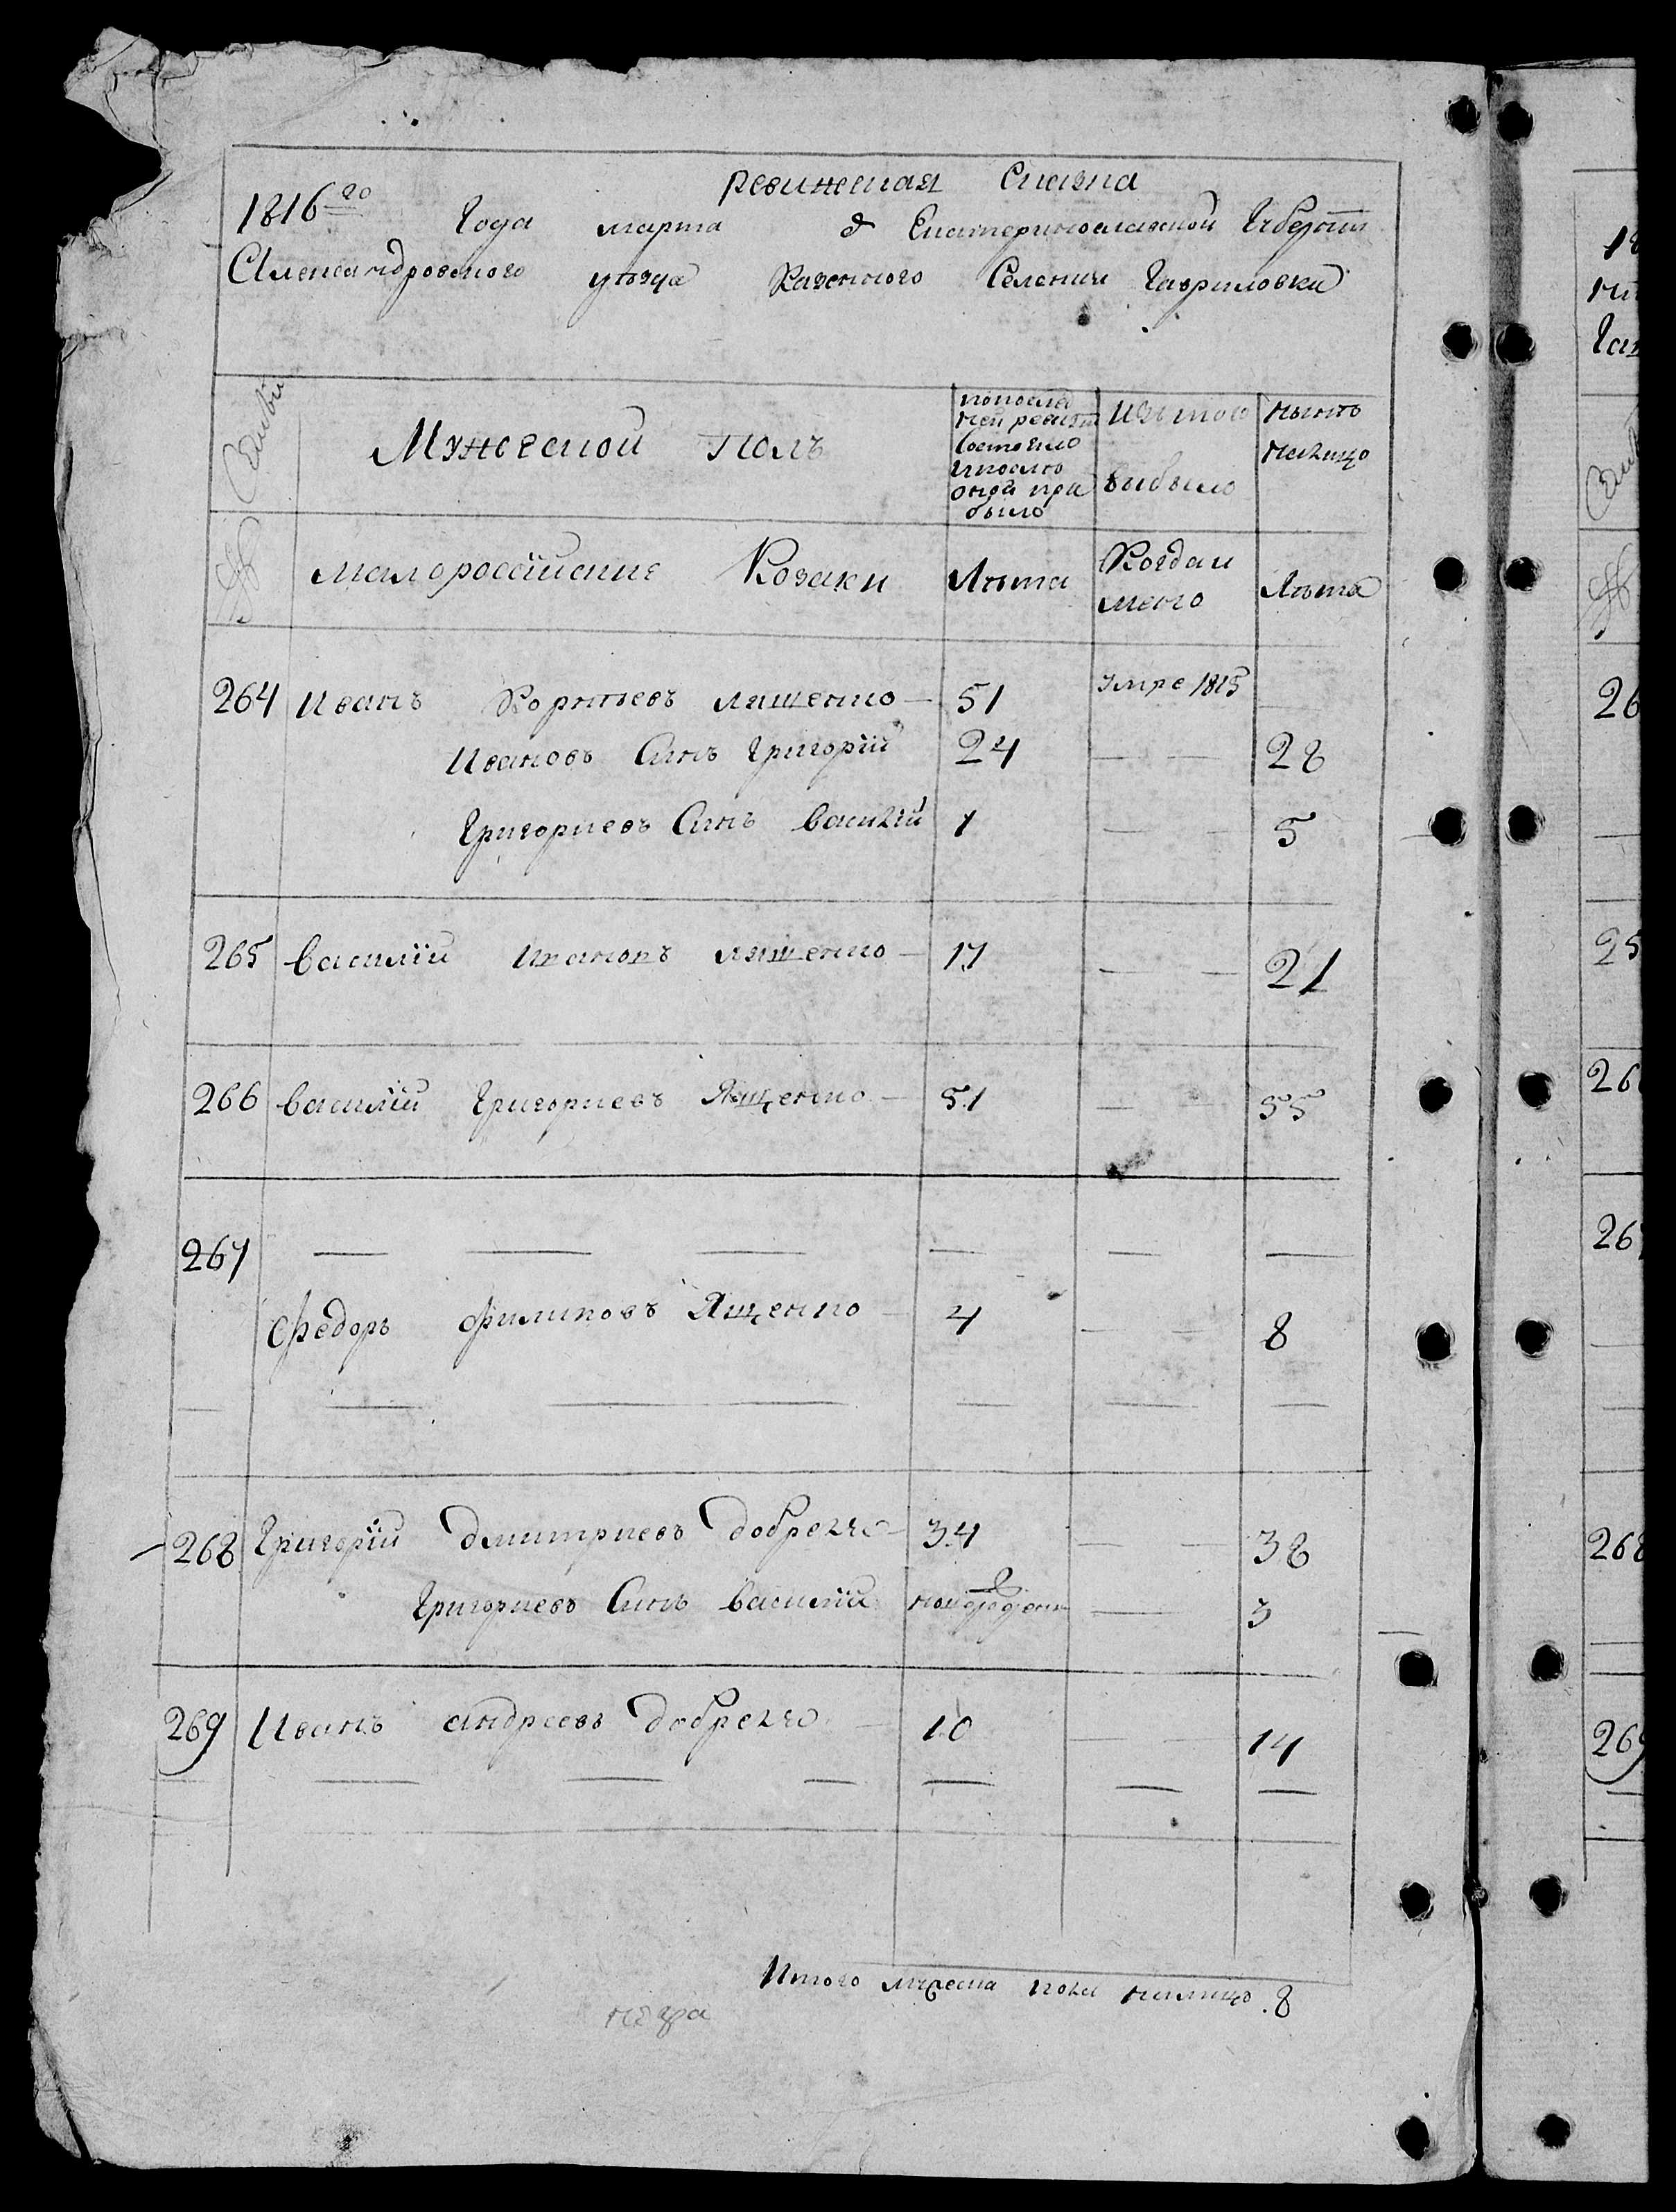 ревижская Сказка
1816го Года марта д Екатеринославской Губерніи
Александровского уезда Казенного Селения Гавриловки
Семьи Мужеской Полъ
попосле
дней ревизіи
состояло
ипосле
оной при
было
Изъ того
выбыло
ныне
налицо
Малороссійские Козаки Лета
Когдаи
мено
Лета
264 Иванъ Лященко — 51 Умре 1815
Ивановъ Синъ Григорій 24 — — 28
Григориевъ Синъ Василій 1 — — 5
265 Василій Ивановъ Лященко — 17 — — 21
266 Василій Григориевъ Ященко — 51 — — 55
267 — — — — — —
Федоръ Филиповъ Ященко — 4 — — 8
— — — — — —
268 Григорій Дмитриевъ Добреля — 34 — — 38
Григориевъ Синъ Василій — 3
269 Иванъ Андреевъ Добреля — 10 — — 14
— — — — — —
Итого мужеска пола налицо 8
18
Га
26
25
26
26
268
269